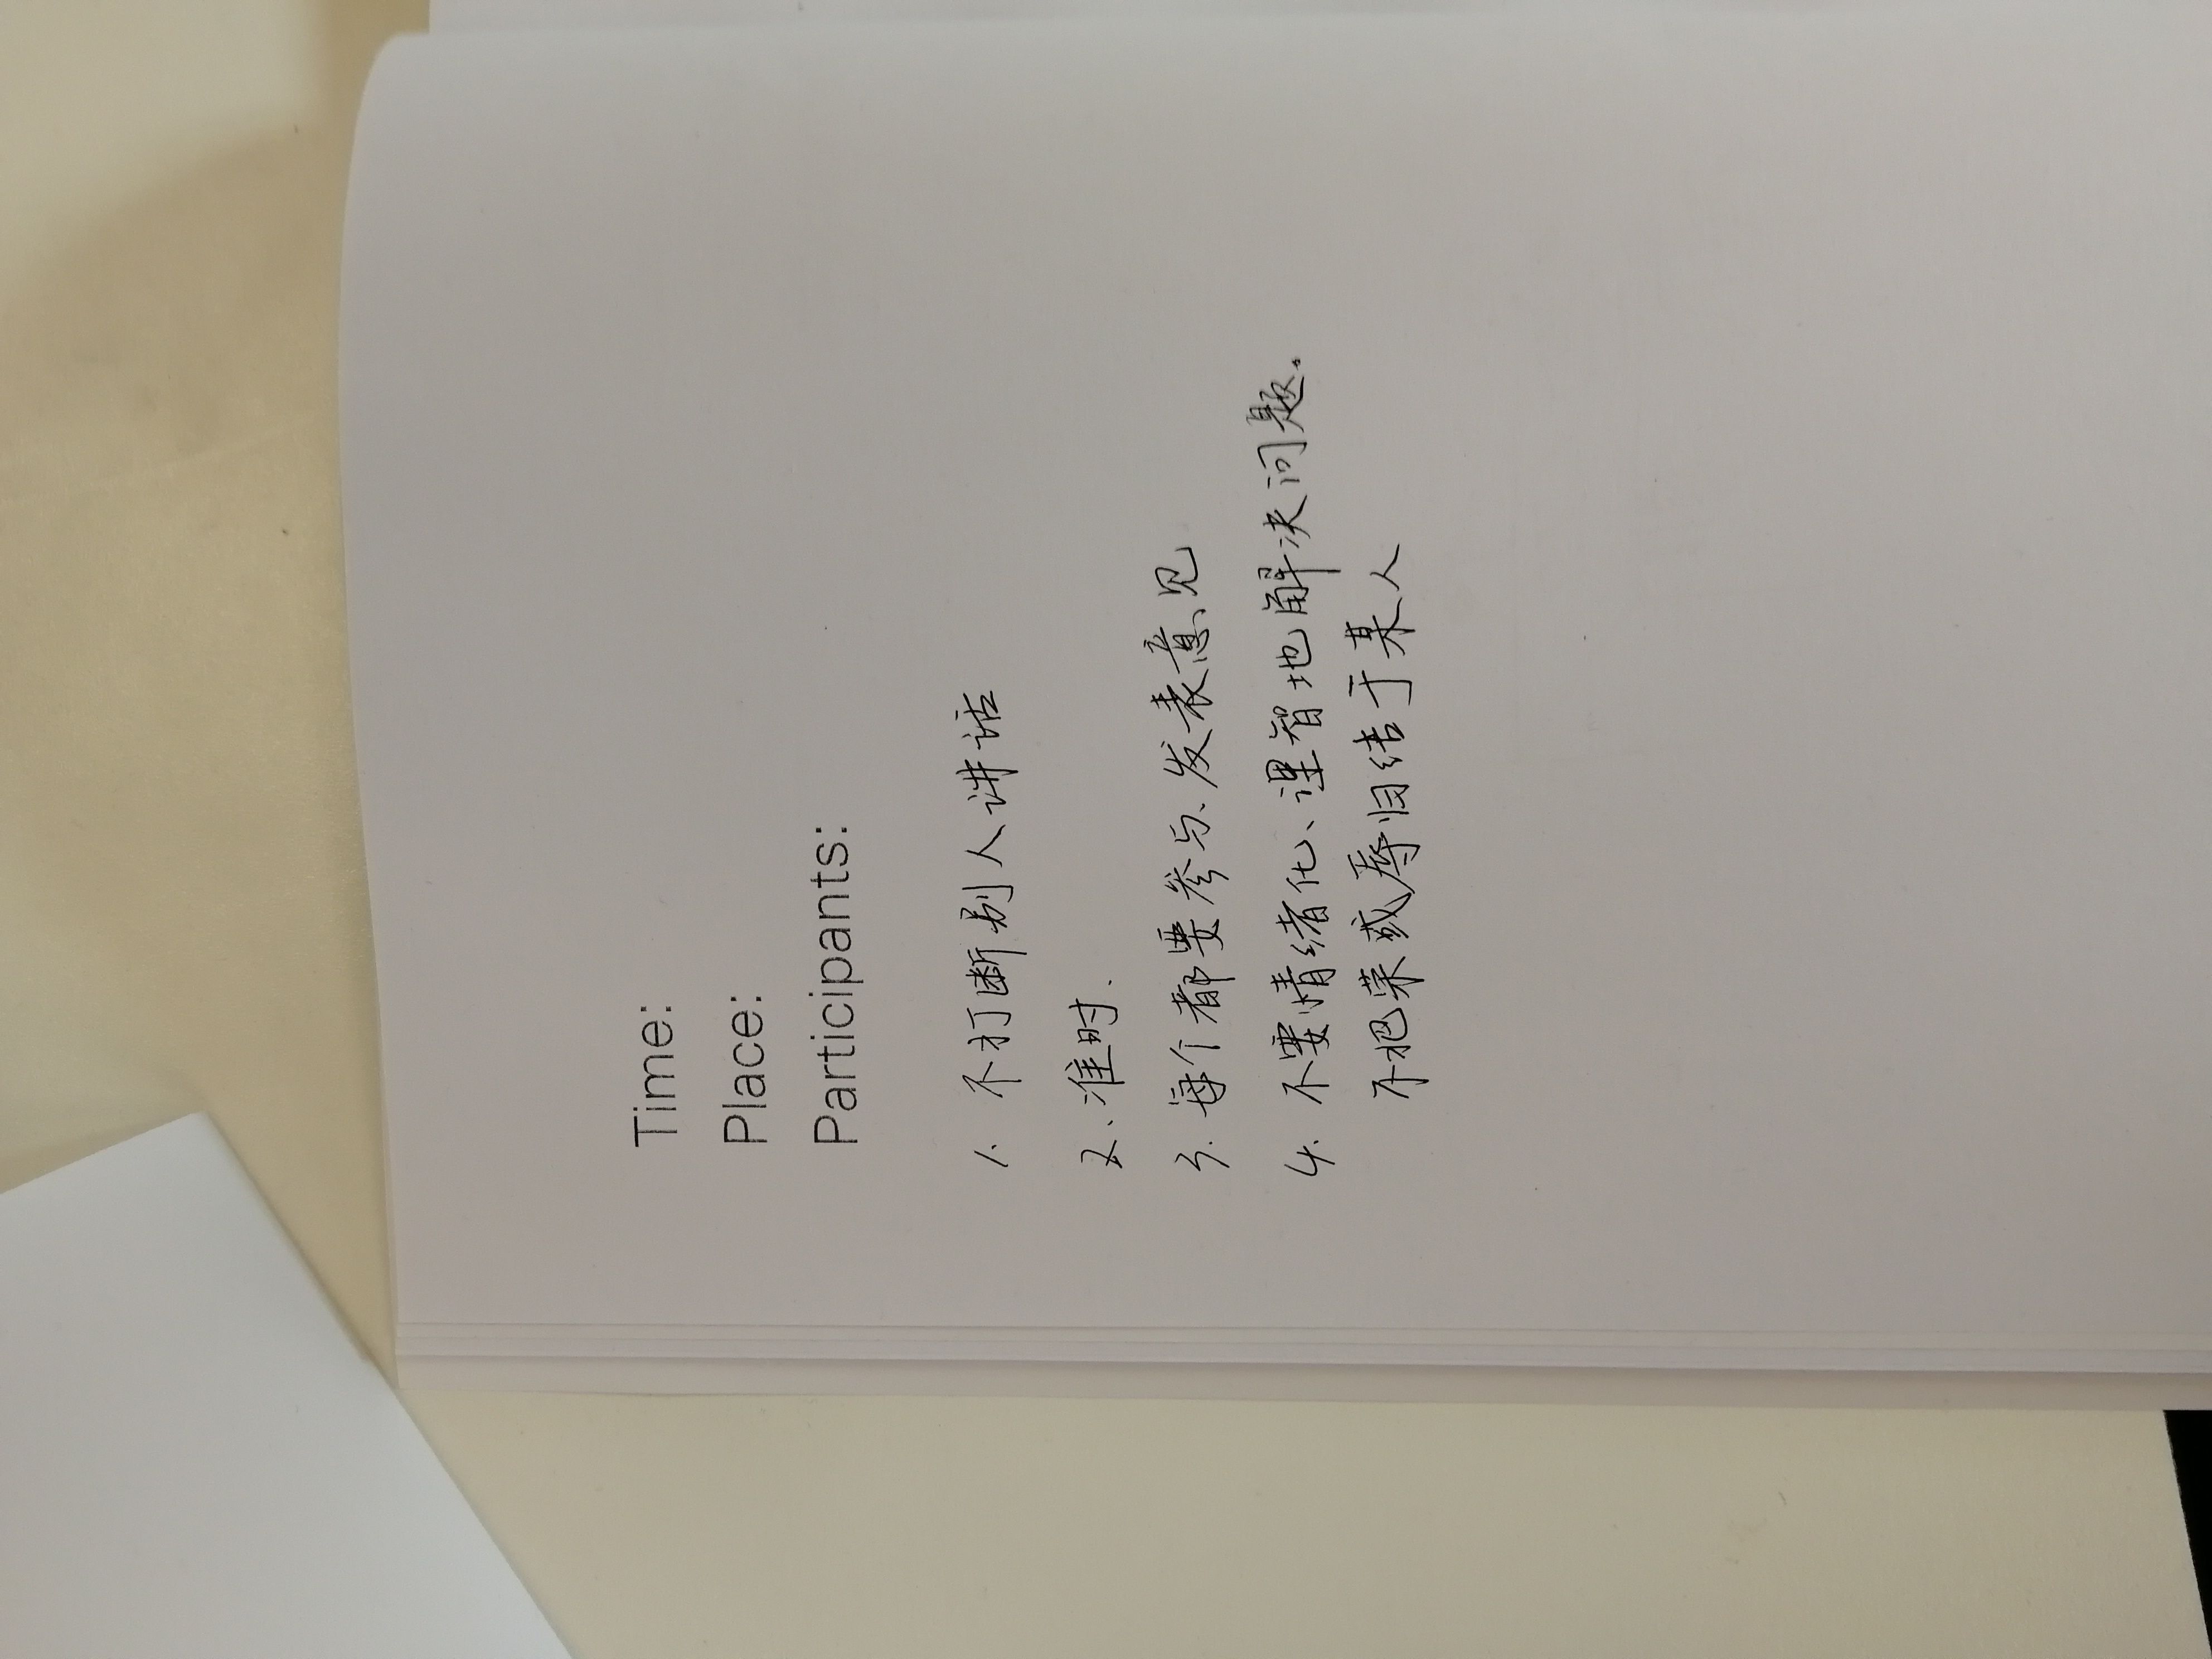 Time:
Place:
Participants:
1. 不打断别人讲话
2、准时.
3. 每个都要参与、发表意见
4. 不要情绪化、理智地解决问题。
不把荣或辱归结于某人